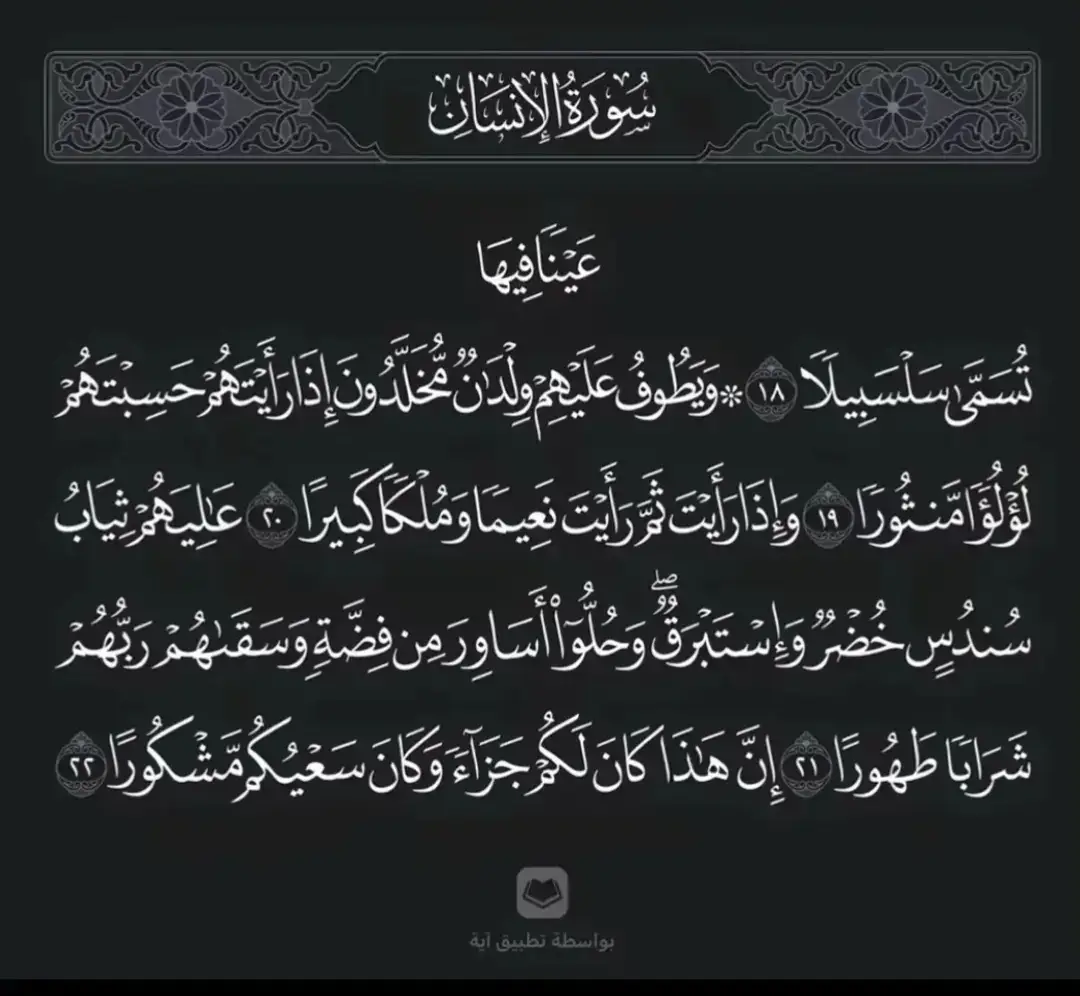 سُورَةُ الإِنسَانِ
عَيْنًا فِيهَا
تُسَمَّىٰ سَلْسَبِيلًا ١٨ ۞ وَيَطُوفُ عَلَيْهِمْ وِلْدَٰنٌ مُّخَلَّدُونَ إِذَا رَأَيْتَهُمْ حَسِبْتَهُمْ
لُؤْلُؤًا مَّنثُورًا ١٩ وَإِذَا رَأَيْتَ ثَمَّ رَأَيْتَ نَعِيمًا وَمُلْكًا كَبِيرًا ٢٠ عَٰلِيَهُمْ ثِيَابُ
سُندُسٍ خُضْرٌ وَإِسْتَبْرَقٌ ۖ وَحُلُّوٓا۟ أَسَاوِرَ مِن فِضَّةٍ وَسَقَىٰهُمْ رَبُّهُمْ
شَرَابًا طَهُورًا ٢١ إِنَّ هَٰذَا كَانَ لَكُمْ جَزَآءً وَكَانَ سَعْيُكُم مَّشْكُورًا ٢٢
بواسطة تطبيق آية